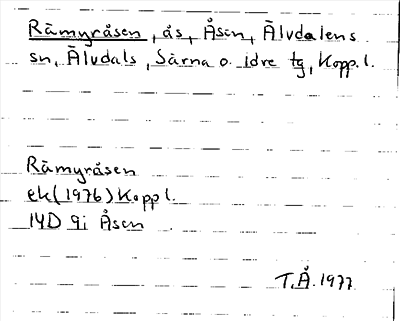 Rämyråsen, ås, Åsen, Älvdalens
sn, Älvdals, Särna o. idre tg, Kopp.l.
Rämyråsen
ek (1976) Kopp l.
14D 9i Åsen
T.Å. 1977